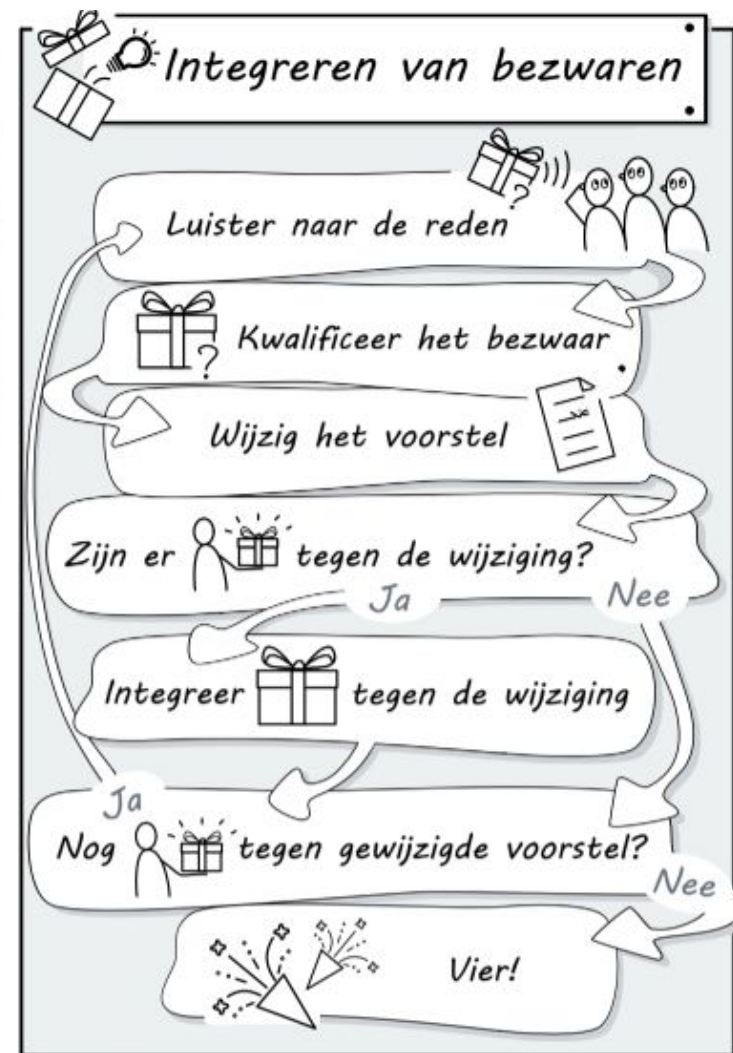 Integreren van bezwaren
?
Luister naar de reden
?
Kwalificeer het bezwaar
Wijzig het voorstel
Zijn er tegen de wijziging?
Ja
Nee
Integreer tegen de wijziging
Ja
Nog tegen gewijzigde voorstel?
Nee
Vier!